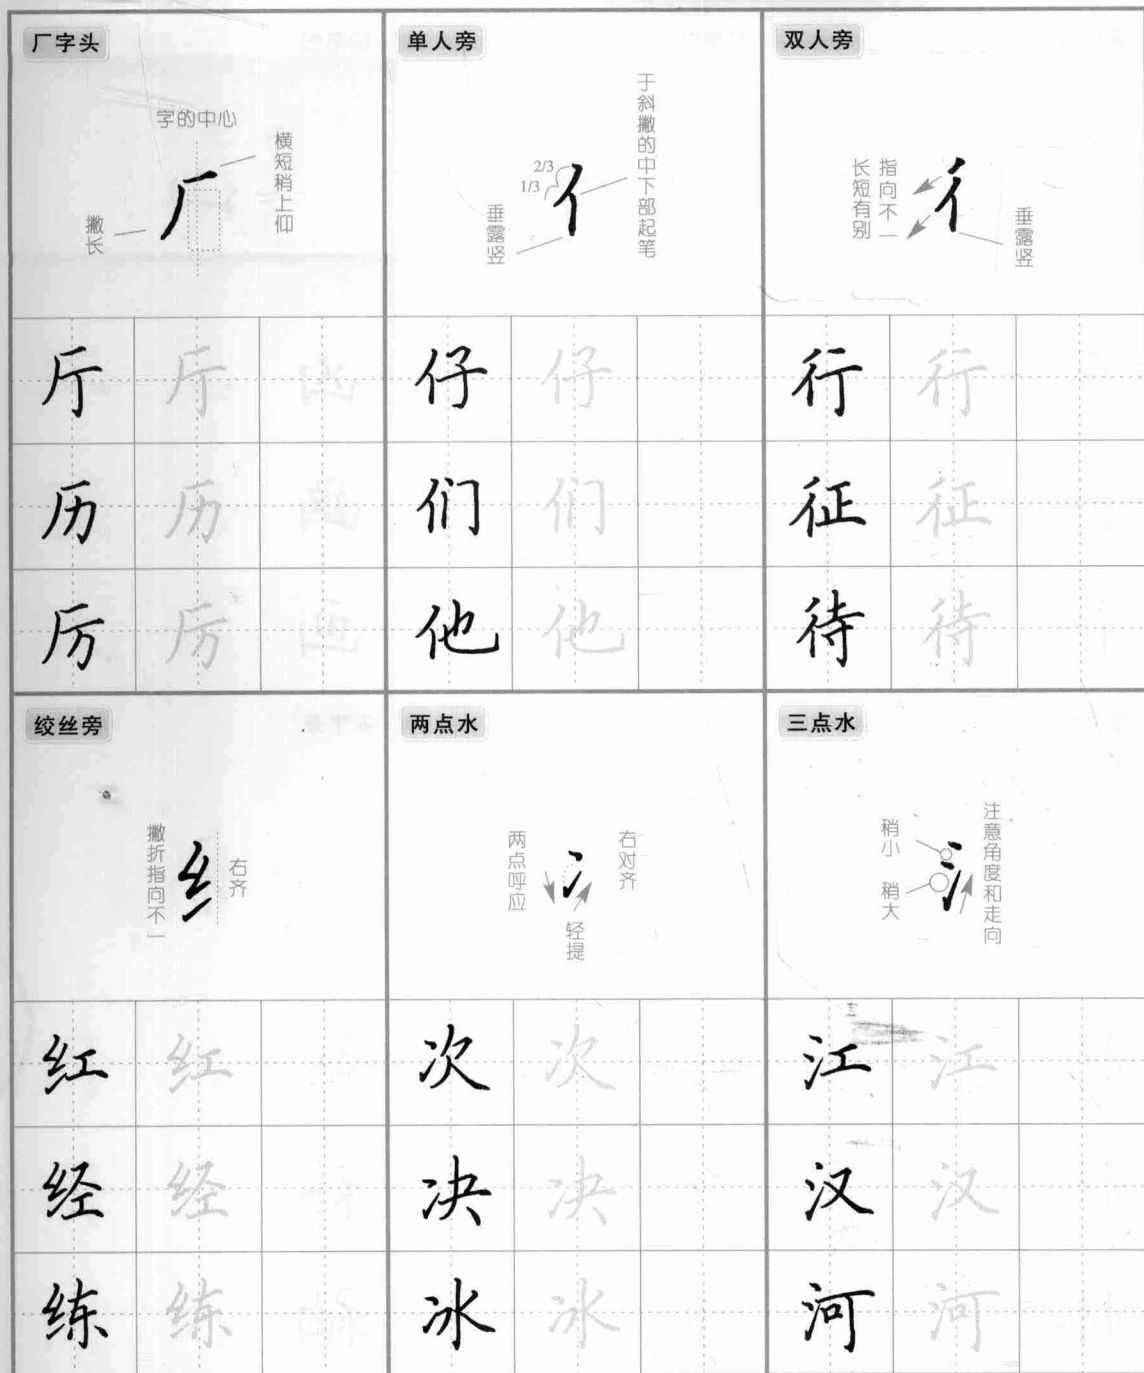 厂字头
字的中心
横短稍上仰
撇长
厅 厅
历 历
厉 厉
单人旁
于斜撇的中下部起笔
2/3
1/3
垂露竖
仔 仔
们 们
他 他
双人旁
指向不一
长短有别
垂露竖
行 行
征 征
待 待
绞丝旁
撇折指向不一
右齐
红 红
经 经
练 练
两点水
两点呼应
右对齐
轻提
次 次
决 决
冰 冰
三点水
稍小
稍大
注意角度和走向
江 江
汉 汉
河 河